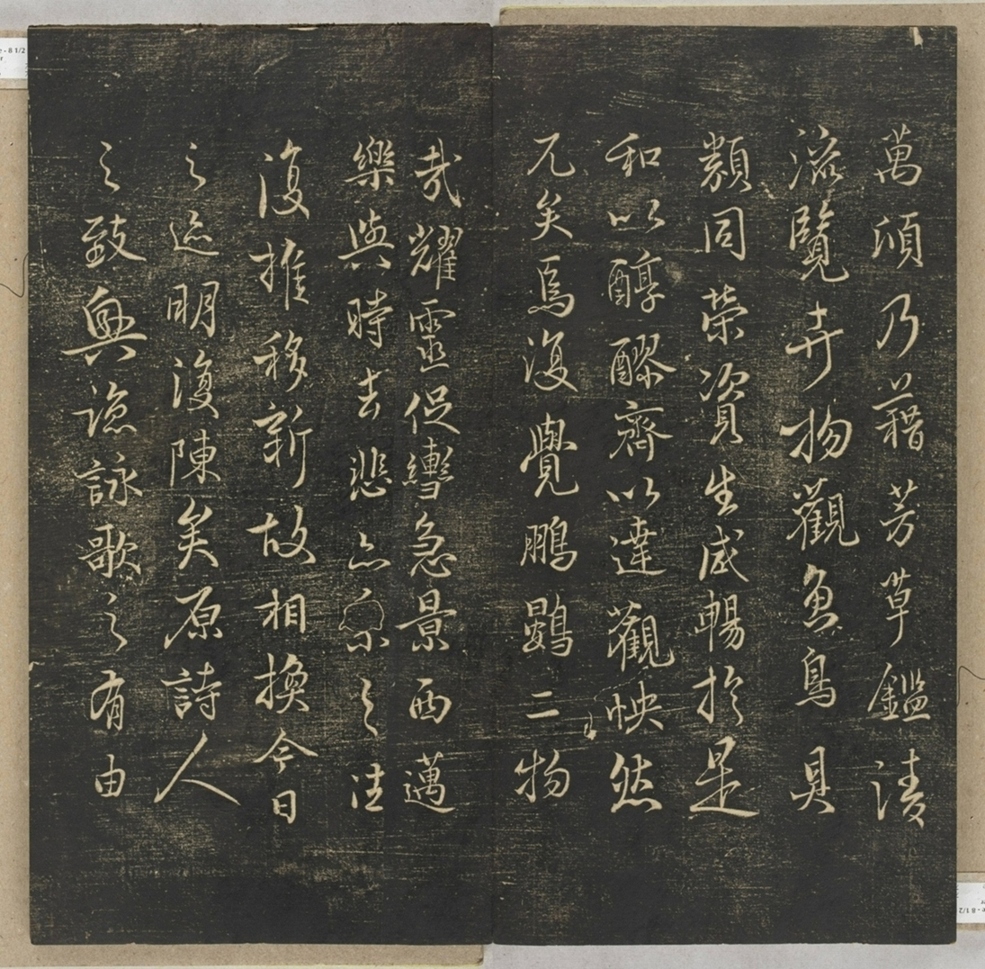 萬頃乃藉芳草鑑清
流覽卉物觀魚鳥具
類同榮資生咸暢於是
和以醇醪齊以達觀怏然
兀矣焉復覺鵬鷃二物
哉耀靈促轡急景西邁
樂與時去悲亦系之往
復推移新故相換今日
之迹明復陳矣原詩人
之致興諒詠歌之有由
8 1/2
8 1/2